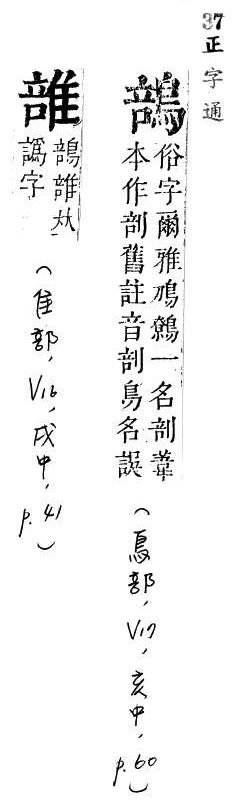 37正字通
䳝
俗字爾雅鳭鷯一名剖葦
本作剖舊註音剖鳥名誤
(鳥部, V17, 亥中, p.60)
䳝𠀤
譌字
(隹部, V16, 戌中, p.41)